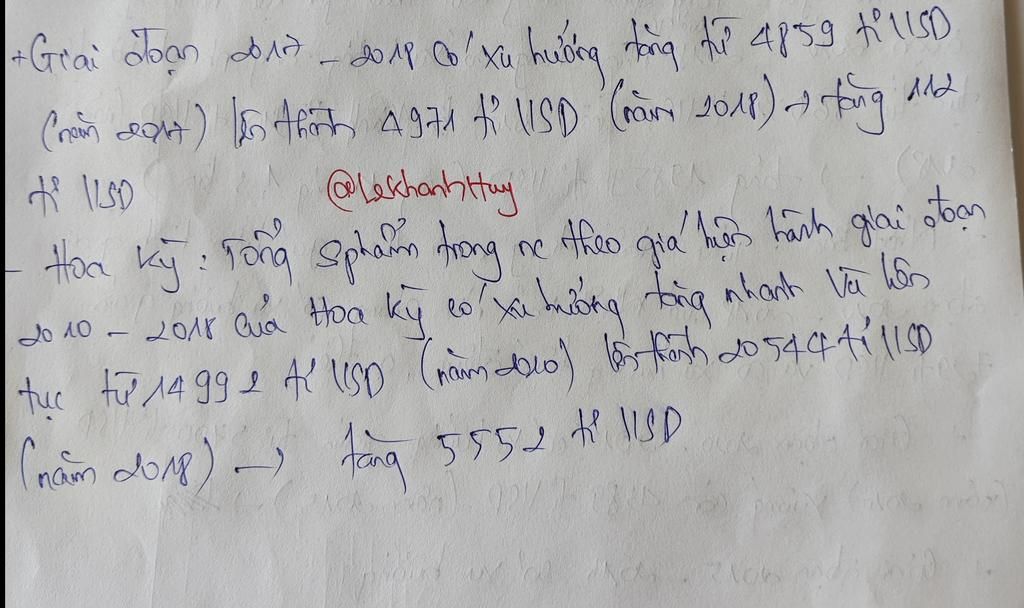 + Giai đoạn 2017 - 2018 có xu hướng tăng từ 4859 tỉ USD
(năm 2017) lên thành 4971 tỉ USD (năm 2018) → tăng 112
tỉ USD
@LeKhanhHuy
- Hoa Kỳ : Tổng sphẩm trong nc theo giá hiện hành giai đoạn
2010 - 2018 của Hoa Kỳ có xu hướng tăng nhanh và liên
tục từ 14992 tỉ USD (năm 2010) lên thành 20544 tỉ USD
(năm 2018) → tăng 5552 tỉ USD